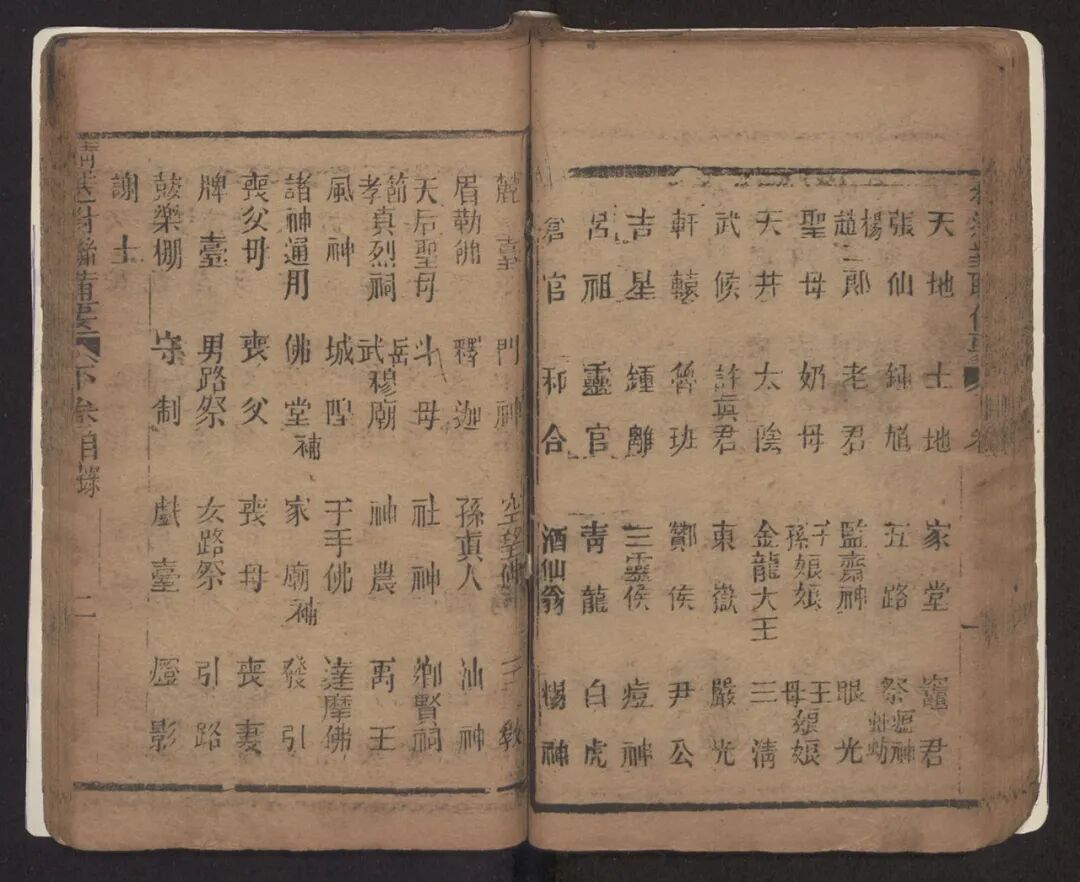 天地 土地 家堂 竈君
張仙 鍾馗 五路 祭瘟神 虸蚄
楊趙二郎 老君 監齋神 眼光
聖母 奶母 子孫娘娘 王母娘娘
天井 太陰 金龍大王 三清
武候 許真君 東嶽 嚴光
軒轅 魯班 鄼侯 尹公
吉星 鍾離 三靈侯 痘神
呂祖 靈官 青龍 白虎
倉官 和合 酒仙翁 楊神
臺 門神 三教
眉勒佛 釋迦 孫真人 汕神
天后聖母 斗母 社神 鄉賢祠
節孝真烈祠 岳武穆廟 神農 禹王
風神 城隍 千手佛 達摩佛
諸神通用 佛堂補 家廟補 發引
喪父母 喪父 喪母 喪妻
牌臺 男路祭 女路祭 引路
鼓樂棚 守制 戲臺 燈影
謝土
對聯備要 下卷目錄 二